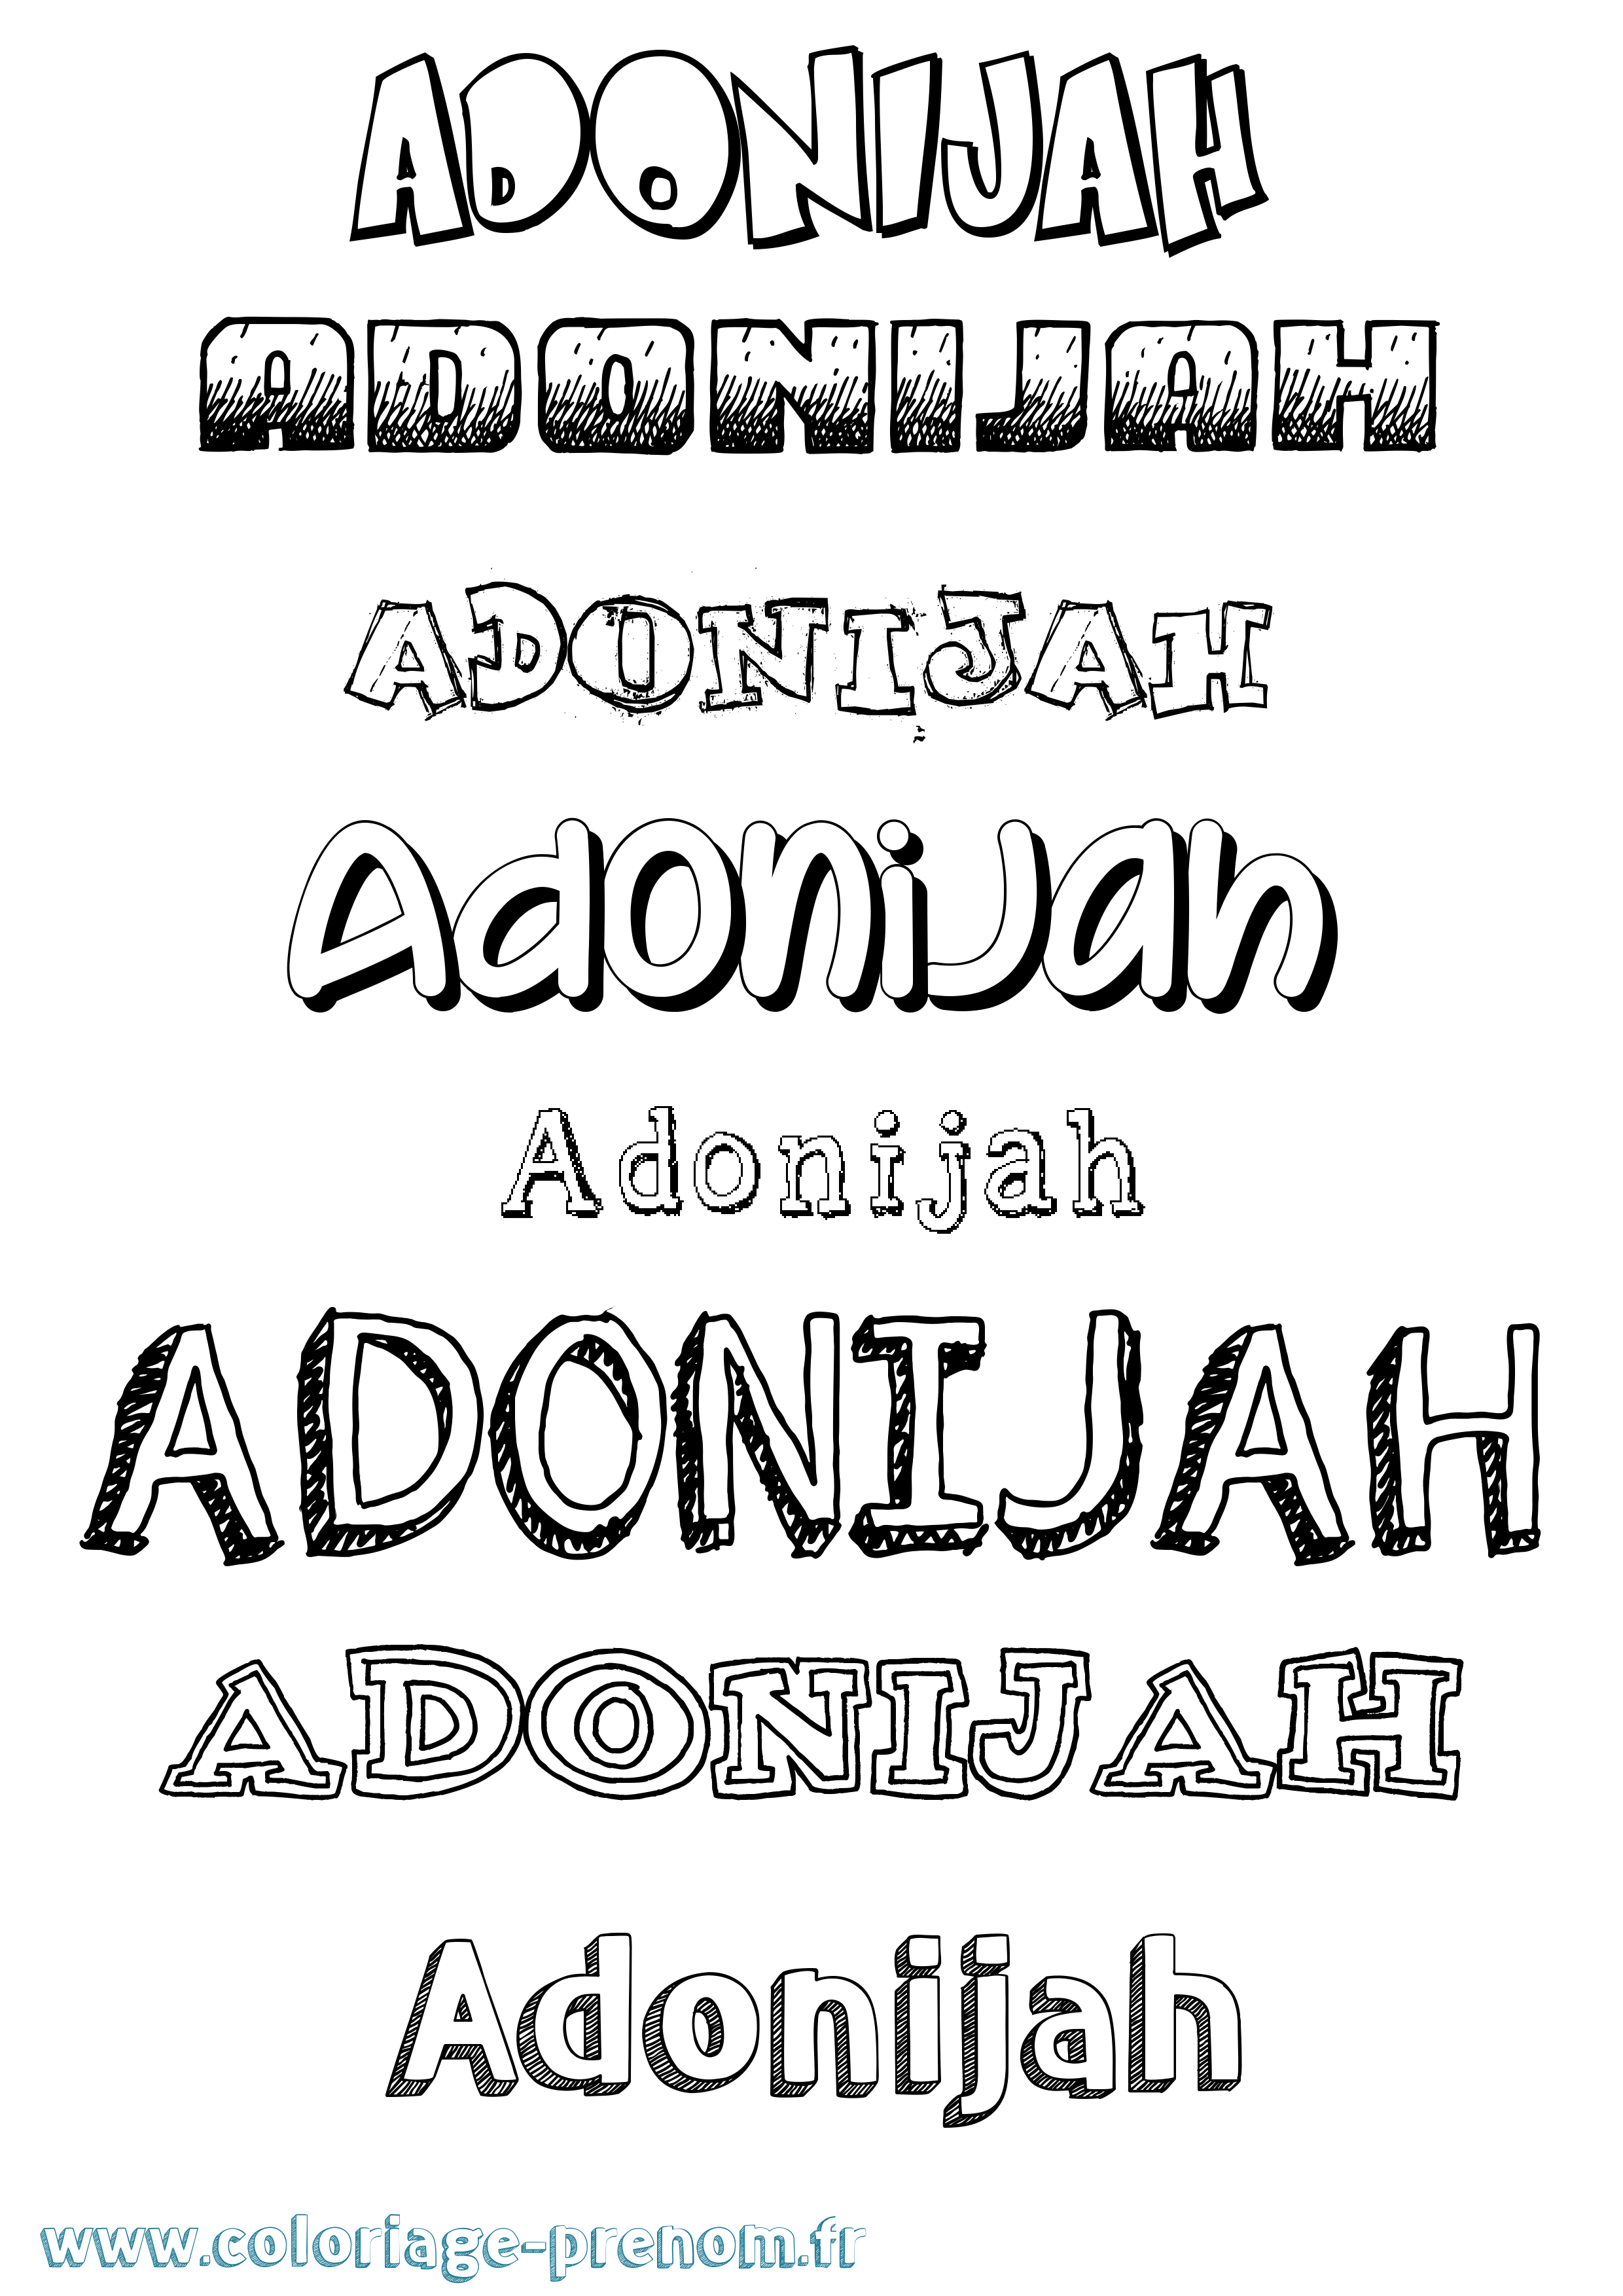 ADONIJAH
ADONIJAH
ADONIJAH
Adonijah
Adonijah
ADONIJAH
ADONIJAH
Adonijah
www.coloriage-prenom.fr